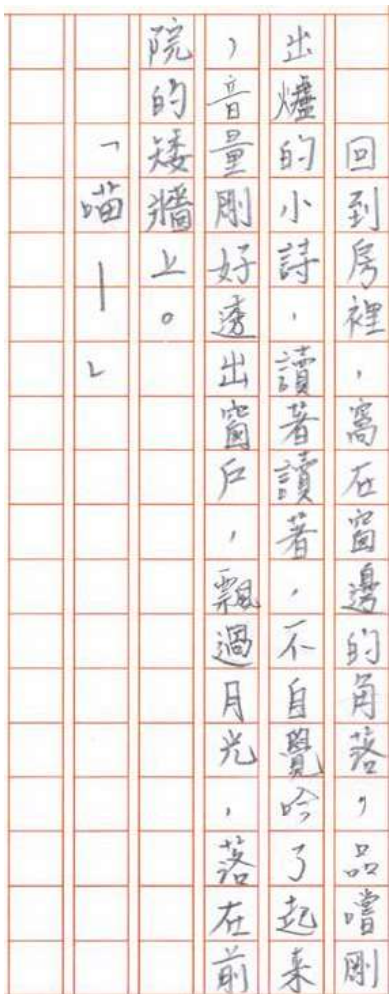 回到房裡，窩在窗邊的角落，品嚐剛
出爐的小詩，讀著讀著，不自覺吟了起来
，音量剛好透出窗戶，飄過月光，落在前
院的矮牆上。
「喵—」